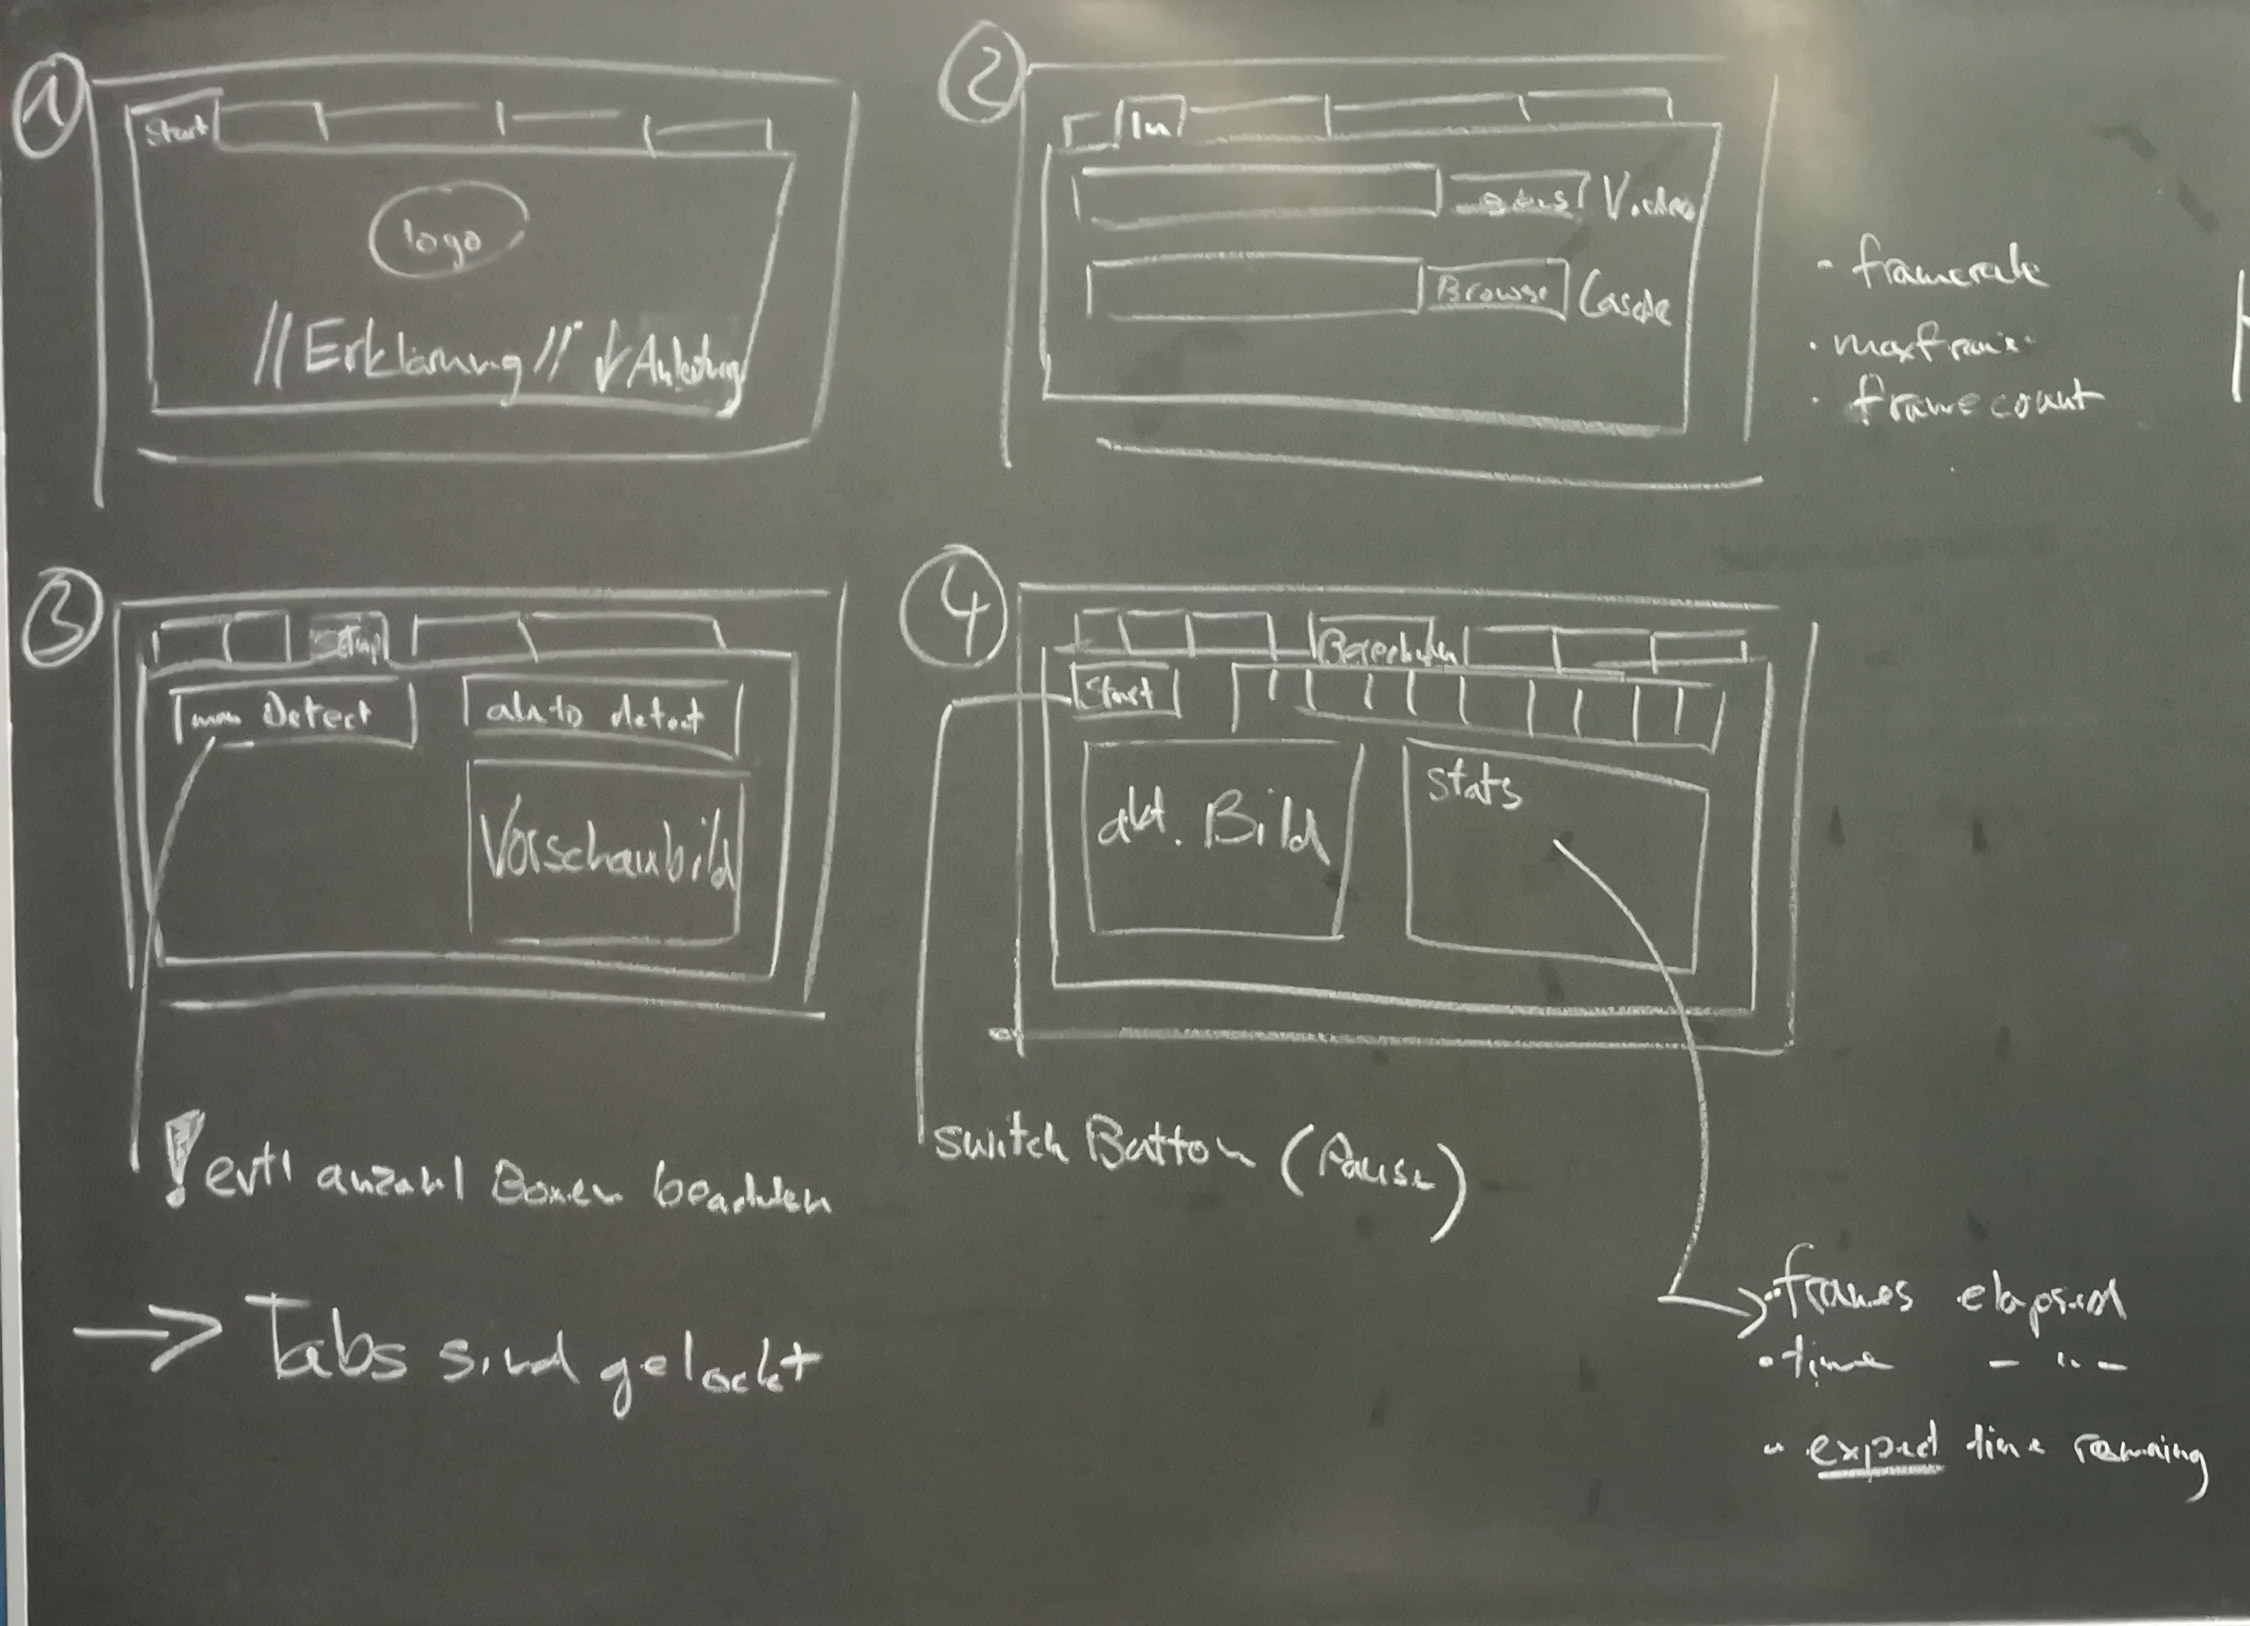 1
Start
logo
//Erklärung// ↓Anleitung
2
In
Video
Browse
- framerate
· maxframe
· framecount
3
Setup
man Detect
auto detect
Vorschaubild
4
Berechnen
Start
akt. Bild
Stats
! evtl anzahl Boxen beachten
switch Button (Pause)
→ Tabs sind gelockt
· frames elapsed
· time - " -
- expected time remaining